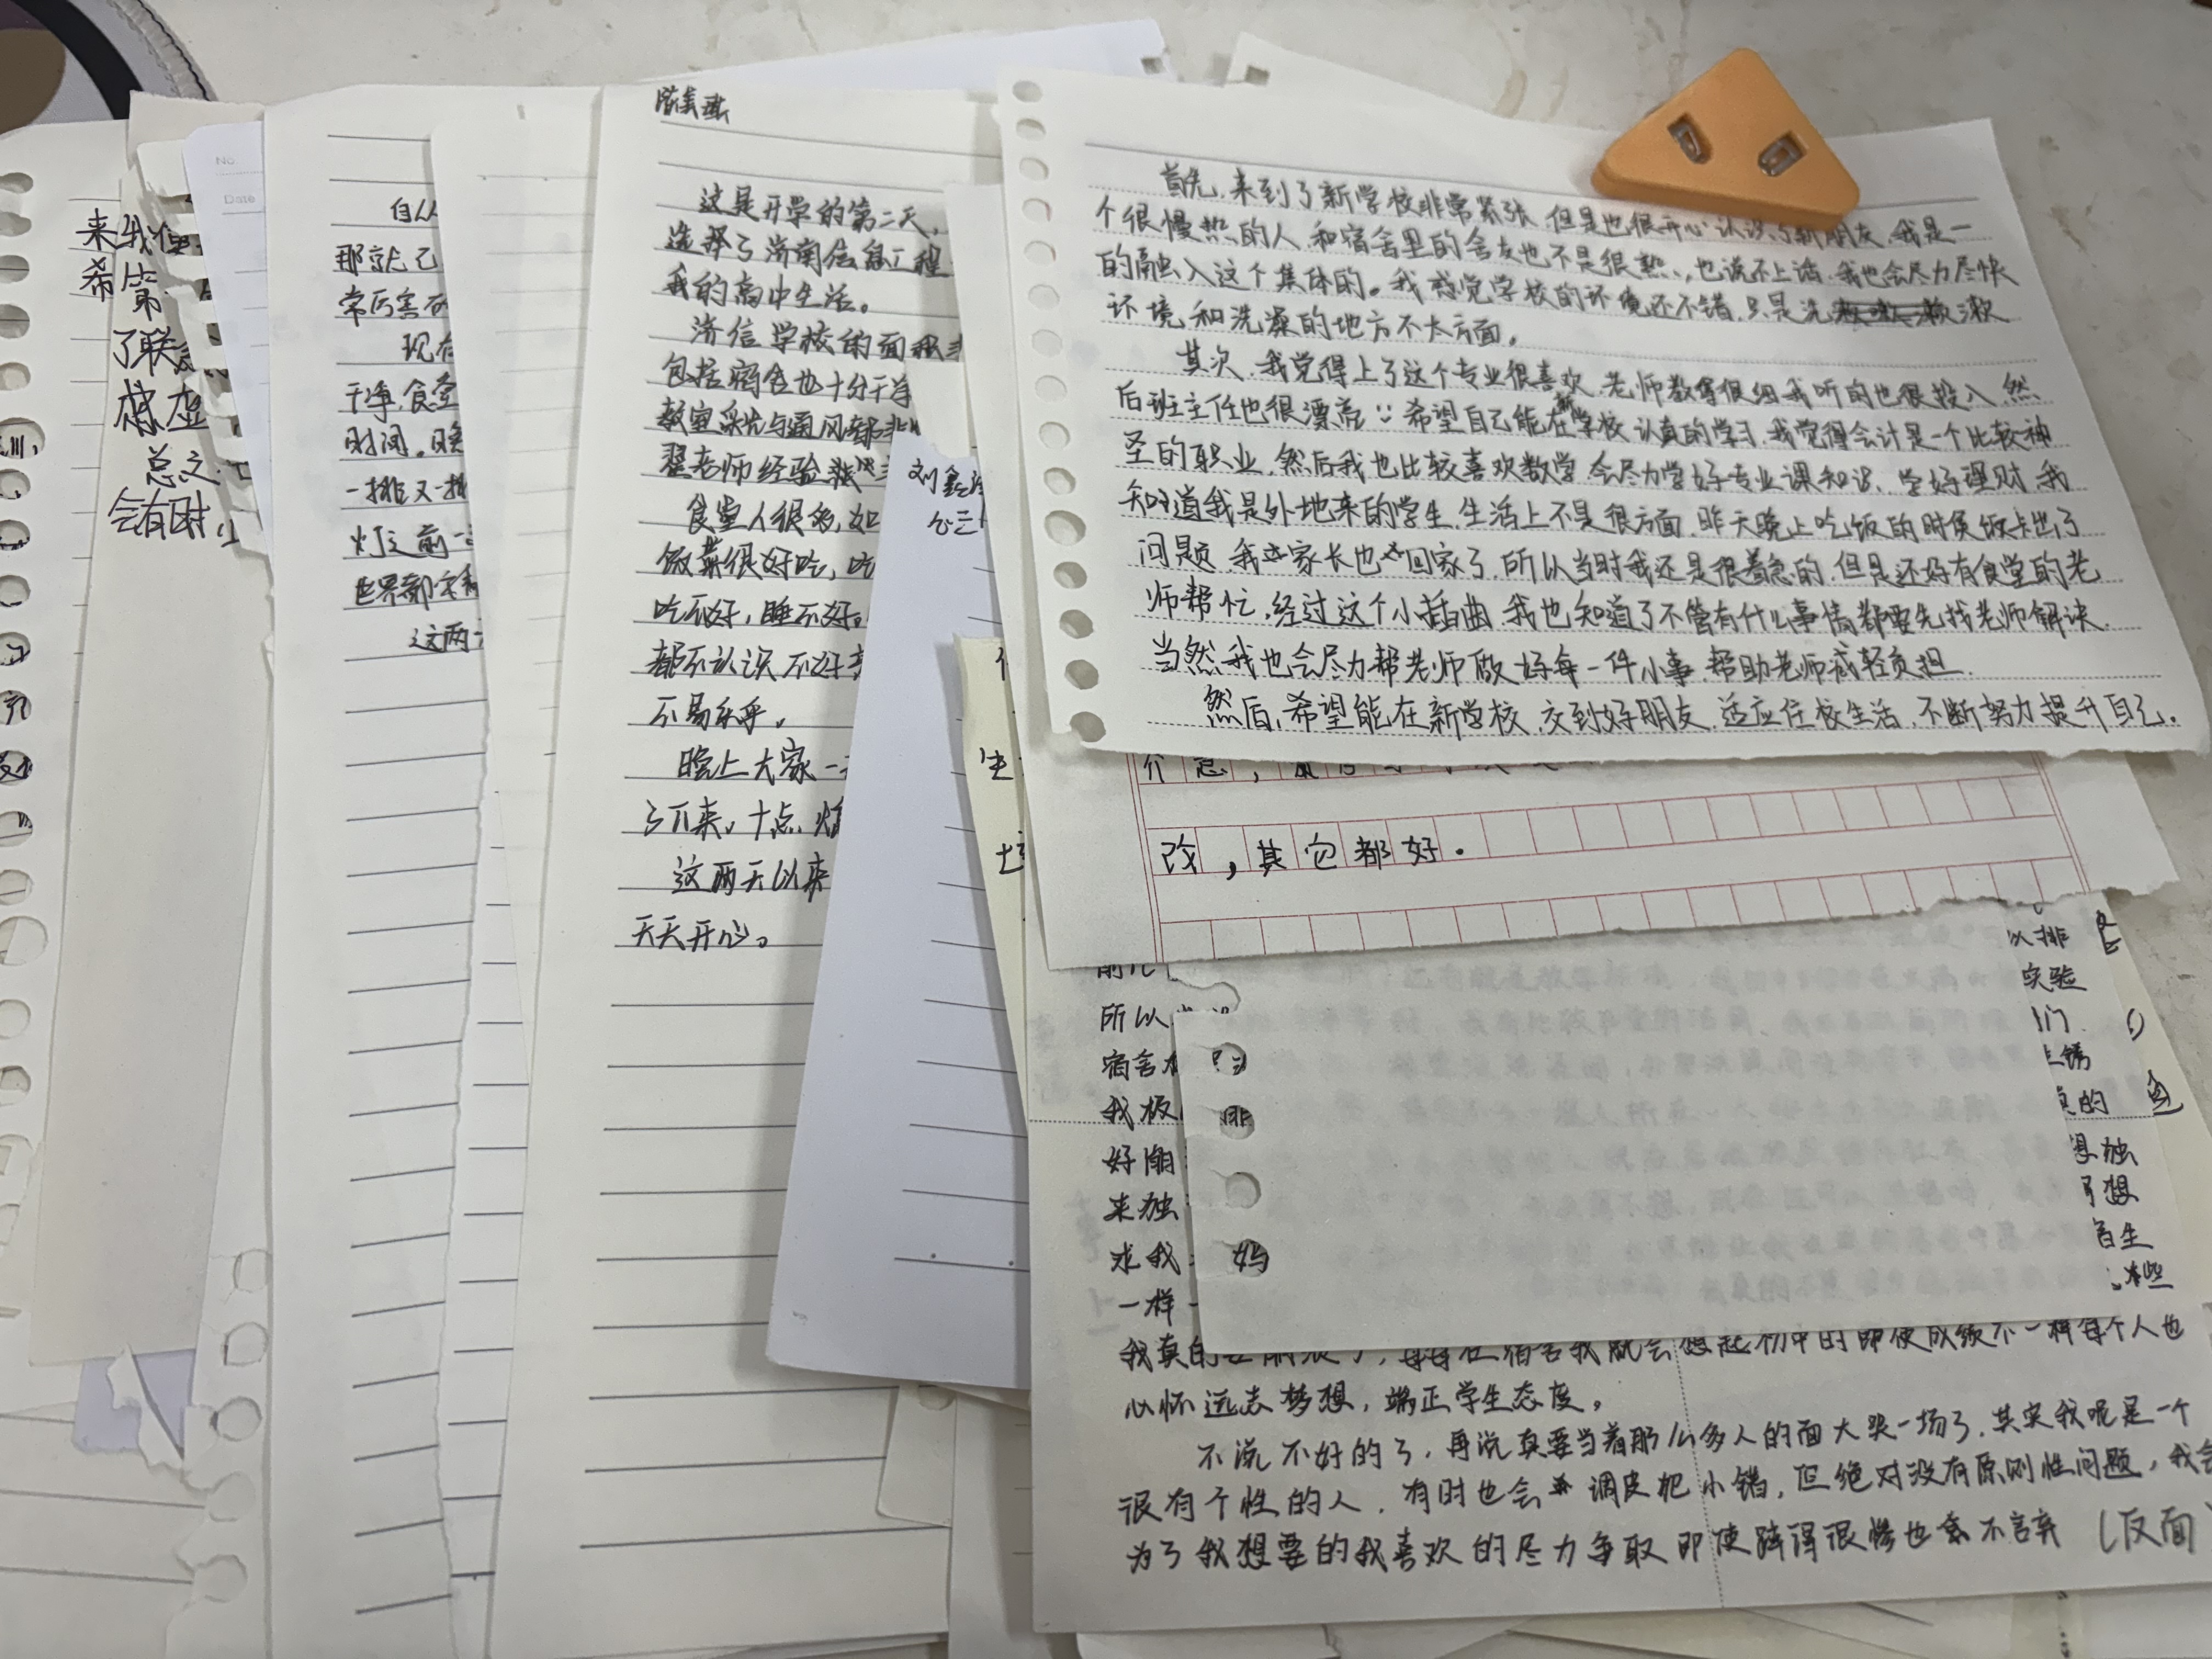 来我
希
第
了联
总之
会有时
No.
Date
自从
那就已
常厉害
现在
干净,食堂
时间。晚
一排又一排
灯之前一
世界都
这两
这是开学的第二天,
选择了济南信息工程
我的高中生活。
济信学校的面积
包括宿舍也十分干净
教室采光与通风都非
翟老师经验
食堂人很多,如
饭菜很好吃,吃
吃不好,睡不好。
都不认识不好
不易乐乎。
晚上大家一
了下来,十点,
这两天以来
天天开心。
刘鑫
首先,来到了新学校非常紧张,但是也很开心认识了新朋友,我是一
个很慢热的人,和宿舍里的舍友也不是很熟,也说不上话,我也会尽力尽快
的融入这个集体的。我感觉学校的环境还不错,只是洗漱
环境和洗澡的地方不太方面。
其次,我觉得上了这个专业很喜欢,老师教得很细我听的也很投入,然
后班主任也很漂亮::希望自己能在新学校认真的学习,我觉得会计是一个比较神
圣的职业,然后我也比较喜欢数学,会尽力学好专业课知识,学好理财,我
知道我是外地来的学生,生活上不是很方面,昨天晚上吃饭的时侯饭卡出了
问题,我家长也回家了,所以当时我还是很着急的,但是还好有食堂的老
师帮忙,经过这个小插曲,我也知道了不管有什么事情都要先找老师解诀,
当然,我也会尽力帮老师做好每一件小事,帮助老师减轻负担.
然后,希望能在新学校,交到好朋友,适应住校生活,不断努力提升自己.
改,其它都好.
所以
宿舍
我板
好朋
来独
求我
一样
排
妈
以排
实验
们
锈
的
独
想
生
些
我真的 ,每每在宿舍我就会想起初中的即使成绩不一样每个人也
心怀远志梦想,端正学生态度。
不说不好的了,再说真要当着那么多人的面大哭一场了,其实我呢是一个
很有个性的人,有时也会调皮犯小错,但绝对没有原则性问题,我会
为了我想要的我喜欢的尽力争取即使摔得很惨也不言弃(反面)